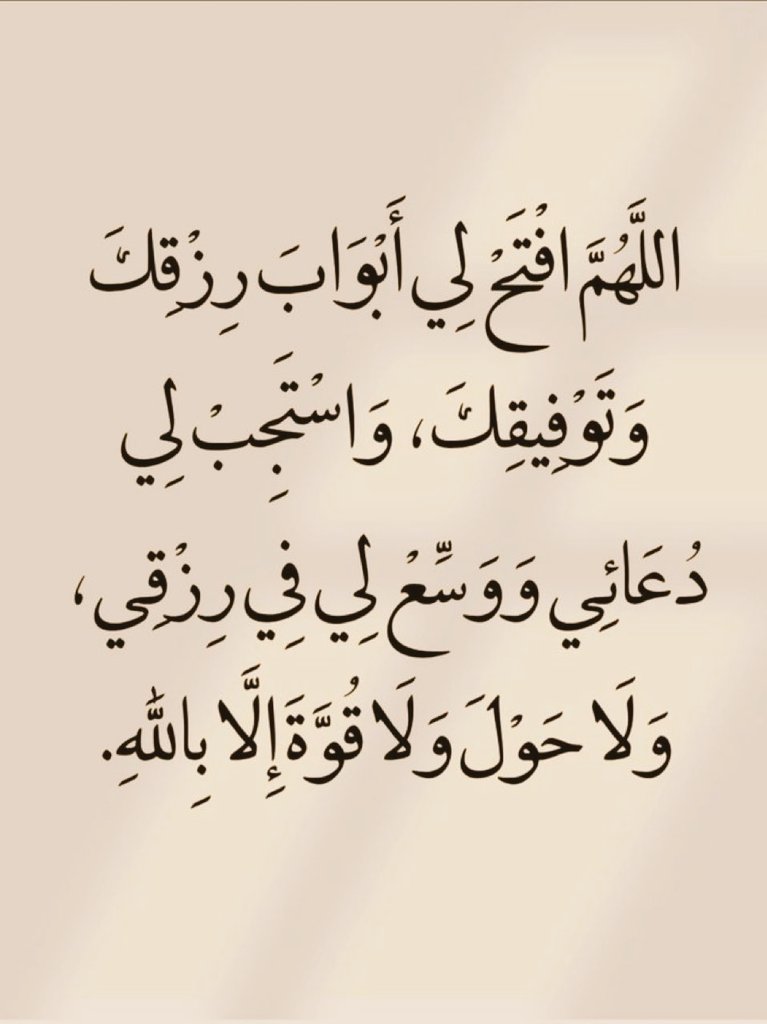 اللَّهُمَّ افْتَحْ لِي أَبْوَابَ رِزْقِكَ
وَتَوْفِيقِكَ، وَاسْتَجِبْ لِي
دُعَائِي وَوَسِّعْ لِي فِي رِزْقِي،
وَلَا حَوْلَ وَلَا قُوَّةَ إِلَّا بِاللَّهِ.